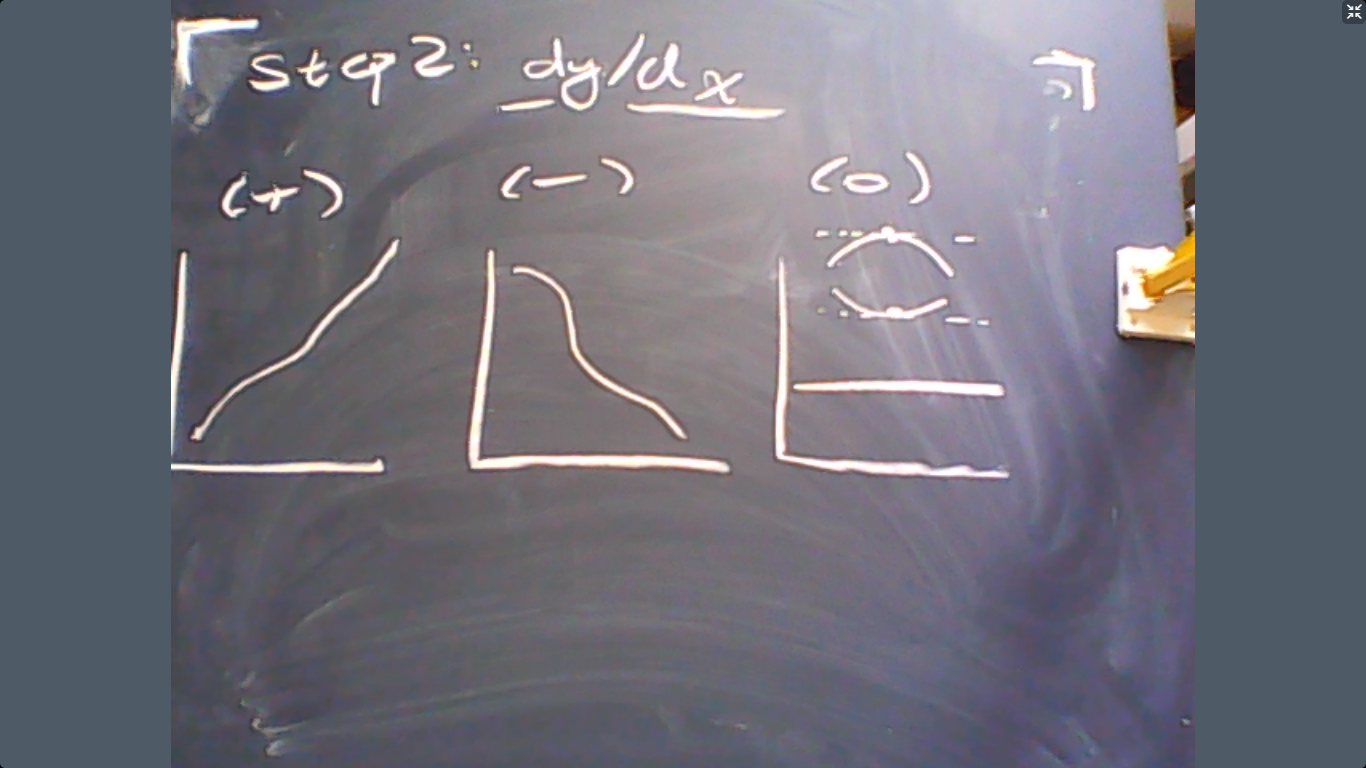 Step 2: dy/dx
(+) (-) (0)